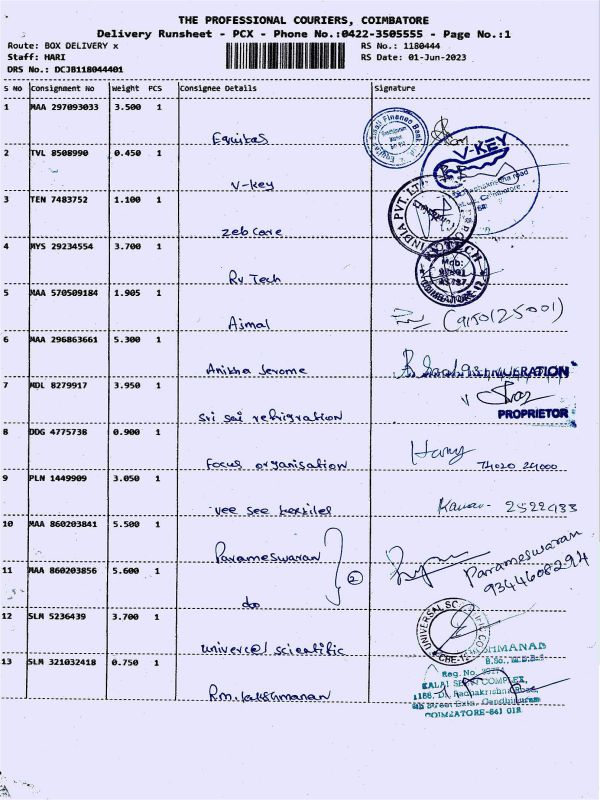 THE PROFESSIONAL COURIERS, COIMBATORE
Delivery Runsheet - PCX - Phone No.:0422-3505555 - Page No.:1
Route: BOX DELIVERY x RS No.: 1180444
Staff: HARI RS Date: 01-Jun-2023
DRS No.: DCJB118044401
S NO Consignment No Weight PCS Consignee Details Signature
1 MAA 297093033 3.500 1
Equitas
2 TVL 8508990 0.450 1
V-KEY
V-key
3 TEN 7483752 1.100 1
INDIA PVT. LTD
Zeb Care
4 MYS 29234554 3.700 1
RV TECH
Mob:
COIMBATORE
Rv Tech
5 MAA 570509184 1.905 1
(9150125001)
Ajmal
6 MAA 296863661 5.300 1
Anitha Jerome
7 MDL 8279917 3.950 1
PROPRIETOR
Sri sai refrigration
8 DDG 4775738 0.900 1
Hary
74020 24000
Focus organisation
9 PLN 1449909 3.050 1
2522433
vee see textiles
10 MAA 860203841 5.500 1
Parameswaran
Parrameswaran
9344608294
11 MAA 860203856 5.600 1
2
do
12 SLM 5236439 3.700 1
UNIVERSAL SC
CBE-12
univercal scientific
13 SLM 321032418 0.750 1
Reg. No.
COMPLEX,
1188, Dr. Radhakrishna Road,
COIMBATORE-641 012
Rm. lakshmanan